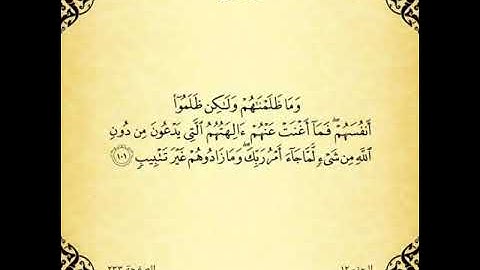 وَمَا ظَلَمْنَٰهُمْ وَلَٰكِن ظَلَمُوٓا۟
أَنفُسَهُمْ ۖ فَمَآ أَغْنَتْ عَنْهُمْ ءَالِهَتُهُمُ ٱلَّتِى يَدْعُونَ مِن دُونِ
ٱللَّهِ مِن شَىْءٍ لَّمَّا جَآءَ أَمْرُ رَبِّكَ ۖ وَمَا زَادُوهُمْ غَيْرَ تَتْبِيبٍ ١٠١
الجزء ١٢ الصفحة ٢٣٣